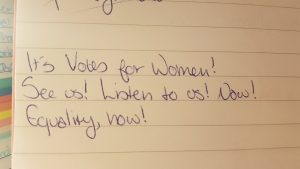 It's Votes for Women!
See us! Listen to us! Now!
Equality, now!